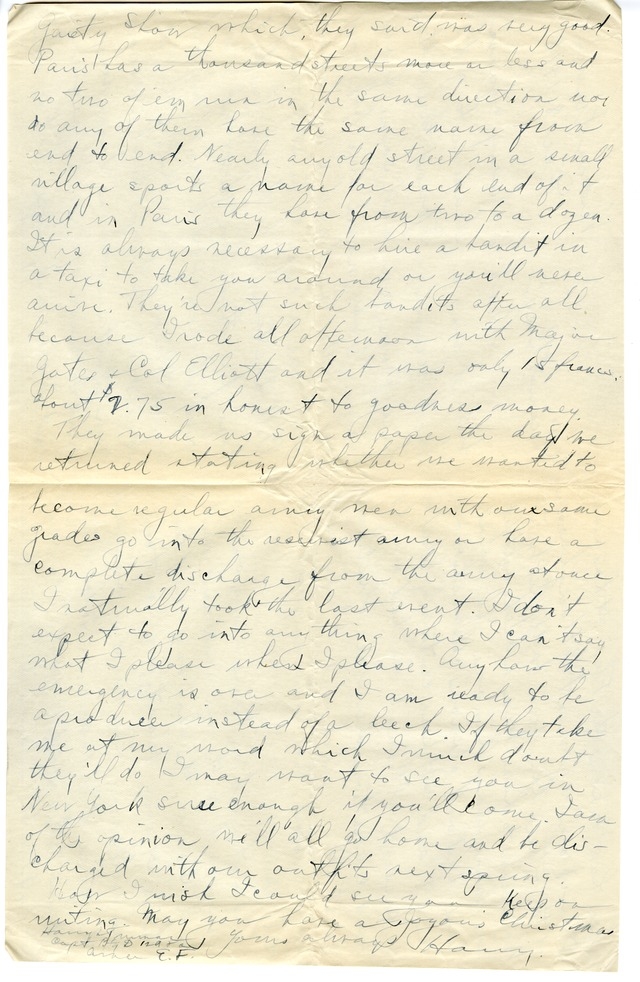 Gaiety Show which, they said, was very good.
Paris has a thousand streets more or less and
no two of em run in the same direction nor
do any of them have the same name from
end to end. Nearly any old street in a small
village sports a name for each end of it
and in Paris they have from two to a dozen.
It is always necessary to hire a bandit in
a taxi to take you around or you'll never
arive. They're not such bandits after all
because I rode all afternoon with Major
Gates & Col Elliott and it was only 15 francs.
about $2.75 in honest to goodness money.
They made us sign a paper the day we
returned stating whether we wanted to
become regular army men with our same
grades go into the reservist army or have a
complete discharge from the army at once
I naturally took the last event. I don't
expect to go into anything where I can't say
what I please when I please. Anyhow the
emergency is over and I am ready to be
a producer instead of a leech. If they take
me at my word which I much doubt
they'll do I may want to see you in
New York sure enough if you'll come. I am
of the opinion we'll all go home and be dis-
charged with our outfits next spring.
How I wish I could see you Keep on
writing. May you have a Joyous Christmas
Yours always Harry.
Harry Truman
Capt